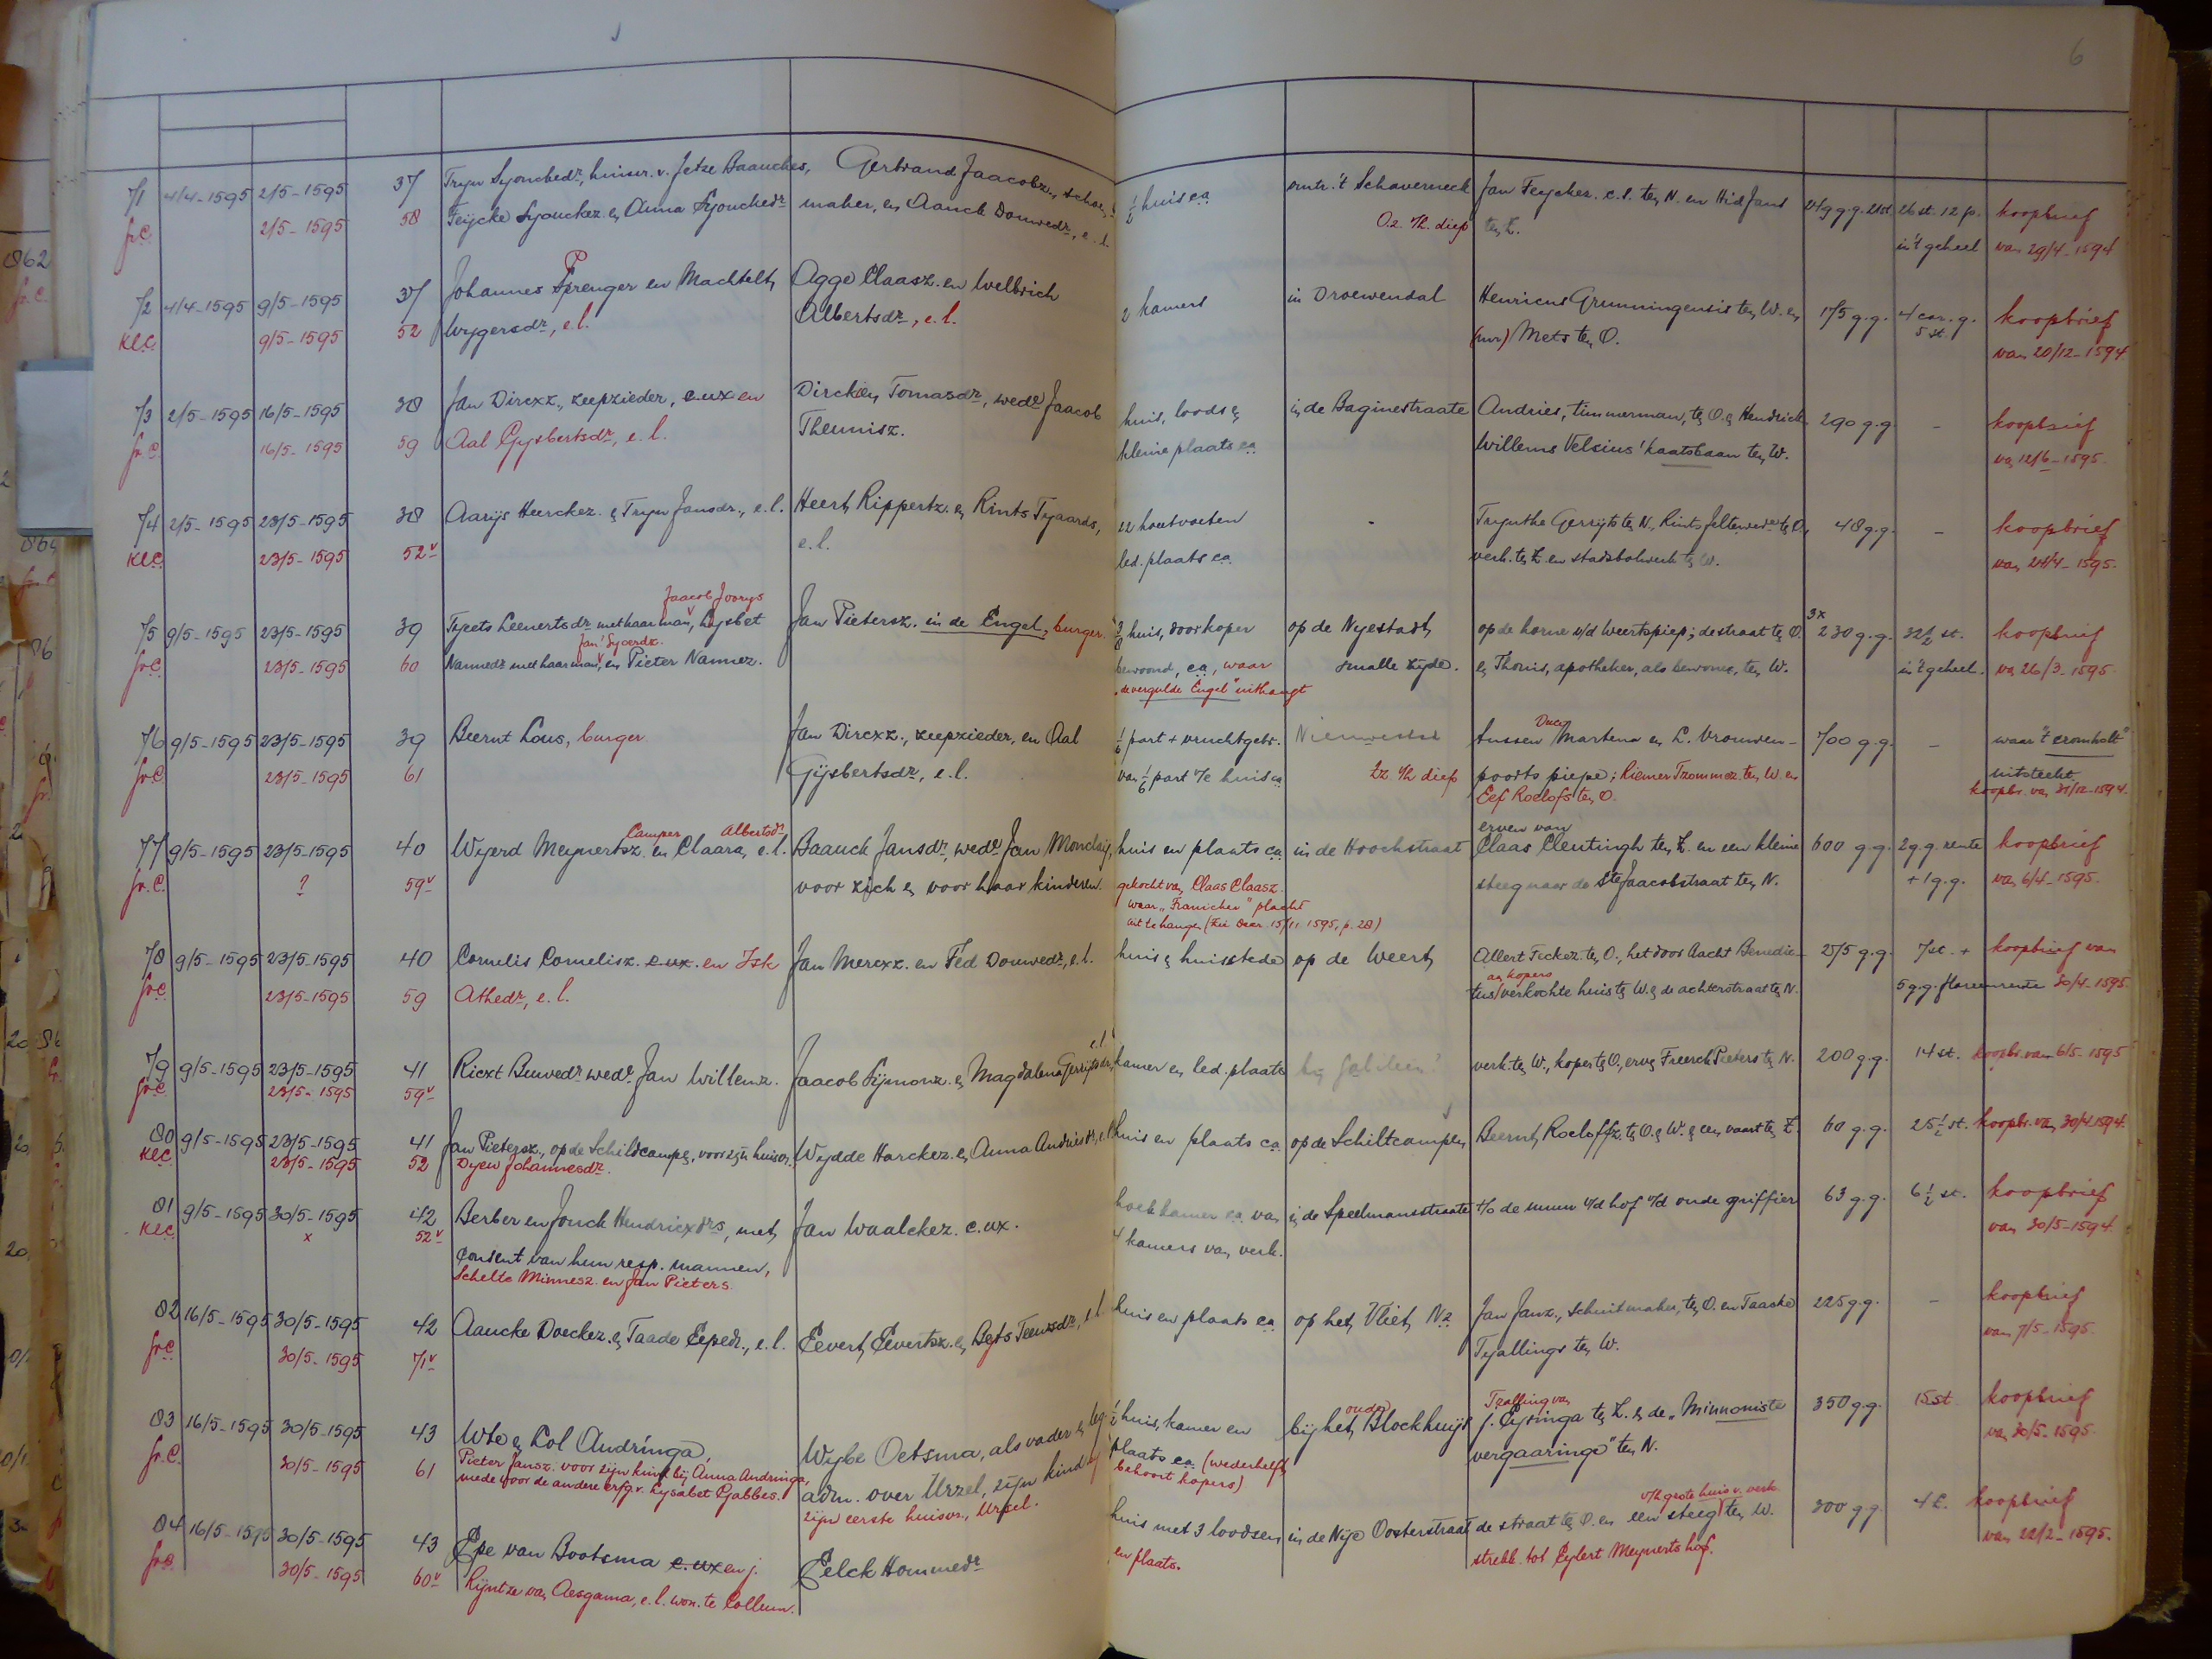 6
71 4/4-1595 2/5-1595 37 Tryn Syouchedr, huisvr. v. Jetze Baauckes, Gerbrand Jaacobz., schoen- ½ huis ca omtr. 't Schaverneck Jan Feyckes c.s. ten N. en Hid Jans 26 st. 12 p. koopbrief
fr.C. 2/5-1595 58 Feycke Syouckez. en Anna Syouchedr maker, en Aanck Douwedr, e.l. O.z. 't diep ten Z. in 't geheel van 29/4-1594
72 4/4-1595 9/5-1595 37 Johannes Sprenger en Machtelt Agge Claasz. en Welbrich 2 kamers in Droevendal Henricus Grunningensis ten W. en 175 g.g. 4 car. g. koopbrief
Kl.C. 9/5-1595 52 Wygersdr, e.l. Albertsdr, e.l. (mr) Mets ten O. 5 st. van 20/12-1594
73 2/5-1595 16/5-1595 38 Jan Dircxz., zeepzieder, e ux en Dircken Tomasdr, wede Jaacob huis, loods en in de Baginestraate Andries, timmerman, ten O. en Hendrick 290 g.g. - koopbrief
fr.C. 16/5-1595 59 Aal Gysbertsdr, e.l. Theunisz. kleine plaats ca Willems Velsius' kaatsbaan ten W. van 12/6-1595.
74 2/5-1595 23/5-1595 38 Aarys Heerckez. en Tryn Jansdr., e.l. Heert Rippertz. en Rints Tyaards, 22 houtvoeten - Trynthe Gerryts ten N., Rints Jeltewede ten O., 48 g.g. - koopbrief
Kl.C. 23/5-1595 52v e.l. led. plaats ca verk. ten Z. en stadsbolwerk ten W. van 24/4-1595.
Jaacob Joorys
75 9/5-1595 23/5-1595 39 Tyets Leenertsdr met haar man, Lysbet Jan Pietersz. in de Engel, burger. huis, door koper op de Nyestadt, op de horne v/d Weertspiep; de straat ten O. 3x 230 g.g. 32½ st. koopbrief
Jan Syoerdz.
fr.C. 23/5-1595 60 Nannedr met haar man, en Pieter Nannez. bewoond, ca, waar smalle zyde. en Thonis, apotheker, als bewoner, ten W. in 't geheel. van 26/3-1595
"de vergulde Engel" uithangt
76 9/5-1595 23/5-1595 39 Beernt Lous, burger Jan Dircxz., zeepzieder, en Aal ⅙ part + vruchtgebr. tussen Duco Martena en L. Vrouwen- 700 g.g. - waar 't "cromholt"
fr.C. 23/5-1595 61 Gysbertsdr, e.l. van ⅙ part 7e huis ca Zz. 't diep poorts piepe; Riemer Tzommez. ten W. en uitsteekt.
Eef Roelofs ten O. koopbr. van 31/12-1594.
Camper Albertsdr erven van
77 9/5-1595 23/5-1595 40 Wyerd Meynertsz. en Claara, e.l. Baauck Jansdr, wede Jan Monday, huis en plaats ca in de Hoochstraat Claas Cleutingh ten Z. en een kleine 600 g.g. 2 g.g. rente koopbrief
fr.C. ? 59v voor zich en voor haar kinderen. gekocht van Claas Claasz. steeg naar de Ste Jaacobstraat ten N. + 1 g.g. van 6/4-1595.
waar "Franicker" placht
uit te hangen (zie daar 15/11 1595, p. 28)
78 9/5-1595 23/5-1595 40 Cornelis Cornelisz. e.ux. en Isk Jan Mercxz. en Fed Douwedr, e.l. huis en huisstede op de Weert, Allert Feckez. ten O., het door Aacht Benedic- 275 g.g. 7 st. + koopbrief van
an kopers
fr.C. 23/5-1595 59 Athedr, e.l. tus verkochte huis ten W. en de achterstraat ten N. 5 g.g. floreenrente 30/4-1595.
79 9/5-1595 23/5-1595 41 Ricxt Buwedr wede Jan Willemz. Jaacob Symonz. en Magdalena Gerrytsdr, e.l. kamer en led. plaats verk. ten W., koper ten O., erven Freerck Pieters ten N. 200 g.g. 14 st. koopbr. van 6/5-1595
fr.C. 23/5-1595 59v
80 9/5-1595 23/5-1595 41 Jan Pietersz., op de Schiltcampen, voor zyn huisvr. Wydde Harckez. en Anna Andriesdr, e.l. huis en plaats ca op de Schiltcampen Beernt Roeloffz. ten O. en W. en een vaart ten Z. 60 g.g. 25½ st. koopbr. van 30/4-1594.
Kl.C. 23/5-1595 52 Dyew Johannesdr.
81 9/5-1595 30/5-1595 42 Berber en Jonck Hendricxdrs, met Jan Waalckez. e.ux. hoekkamer ca van in de Speelmansstraate t/o de muur v/d hof v/d oude griffier 63 g.g. 6½ st. koopbrief
Kl.C. x 52v consent van hun resp. mannen, 4 kamers van verk. van 30/5-1594.
Schelte Minnesz. en Jan Pieters.
82 16/5-1595 30/5-1595 42 Aaucke Doeckez. en Taade Eepedr., e.l. Eevert Eevertsz. en Bets Teeuwsdr, e.l. huis en plaats ca op het Vliet Nz Jan Janz., schuitmaker, ten O. en Taacke 225 g.g. - koopbrief
fr.C. 30/5-1595 71v Tyallings ten W. van 7/5-1595.
ouds Tzalling van
83 16/5-1595 30/5-1595 43 Wto en Lol Andringa, Wybe Oetsma, als vader en leg. ½ huis, kamer en by het Blockhuys J. Eysinga ten Z. en de "Minnoniste 350 g.g. 15 st. koopbrief
fr.C. 30/5-1595 61 Pieter Jansz. voor zijn kind bij Anna Andringa, adm. over Urzel, zijn kind by plaats ca (wederhelft vergaaringe" ten N. van 30/5-1595.
mede voor de andere erfg. v. Lysabet Gabbes. zijn eerste huisvr., Ursel. behoort kopers)
v/h grote huis v. verk.
84 16/5-1595 30/5-1595 43 Epe van Bootsma e.ux en j. Eelck Hommedr huis met 3 loodsen in de Nije Oosterstraat de straat ten O. en een steeg ten W. 300 g.g. 4 £. koopbrief
fr.C. 30/5-1595 60v Lijntze van Aesgama, e.l. won. te Collum. en plaats. strekk. tot Eylert Meynerts hof. van 22/2-1595.